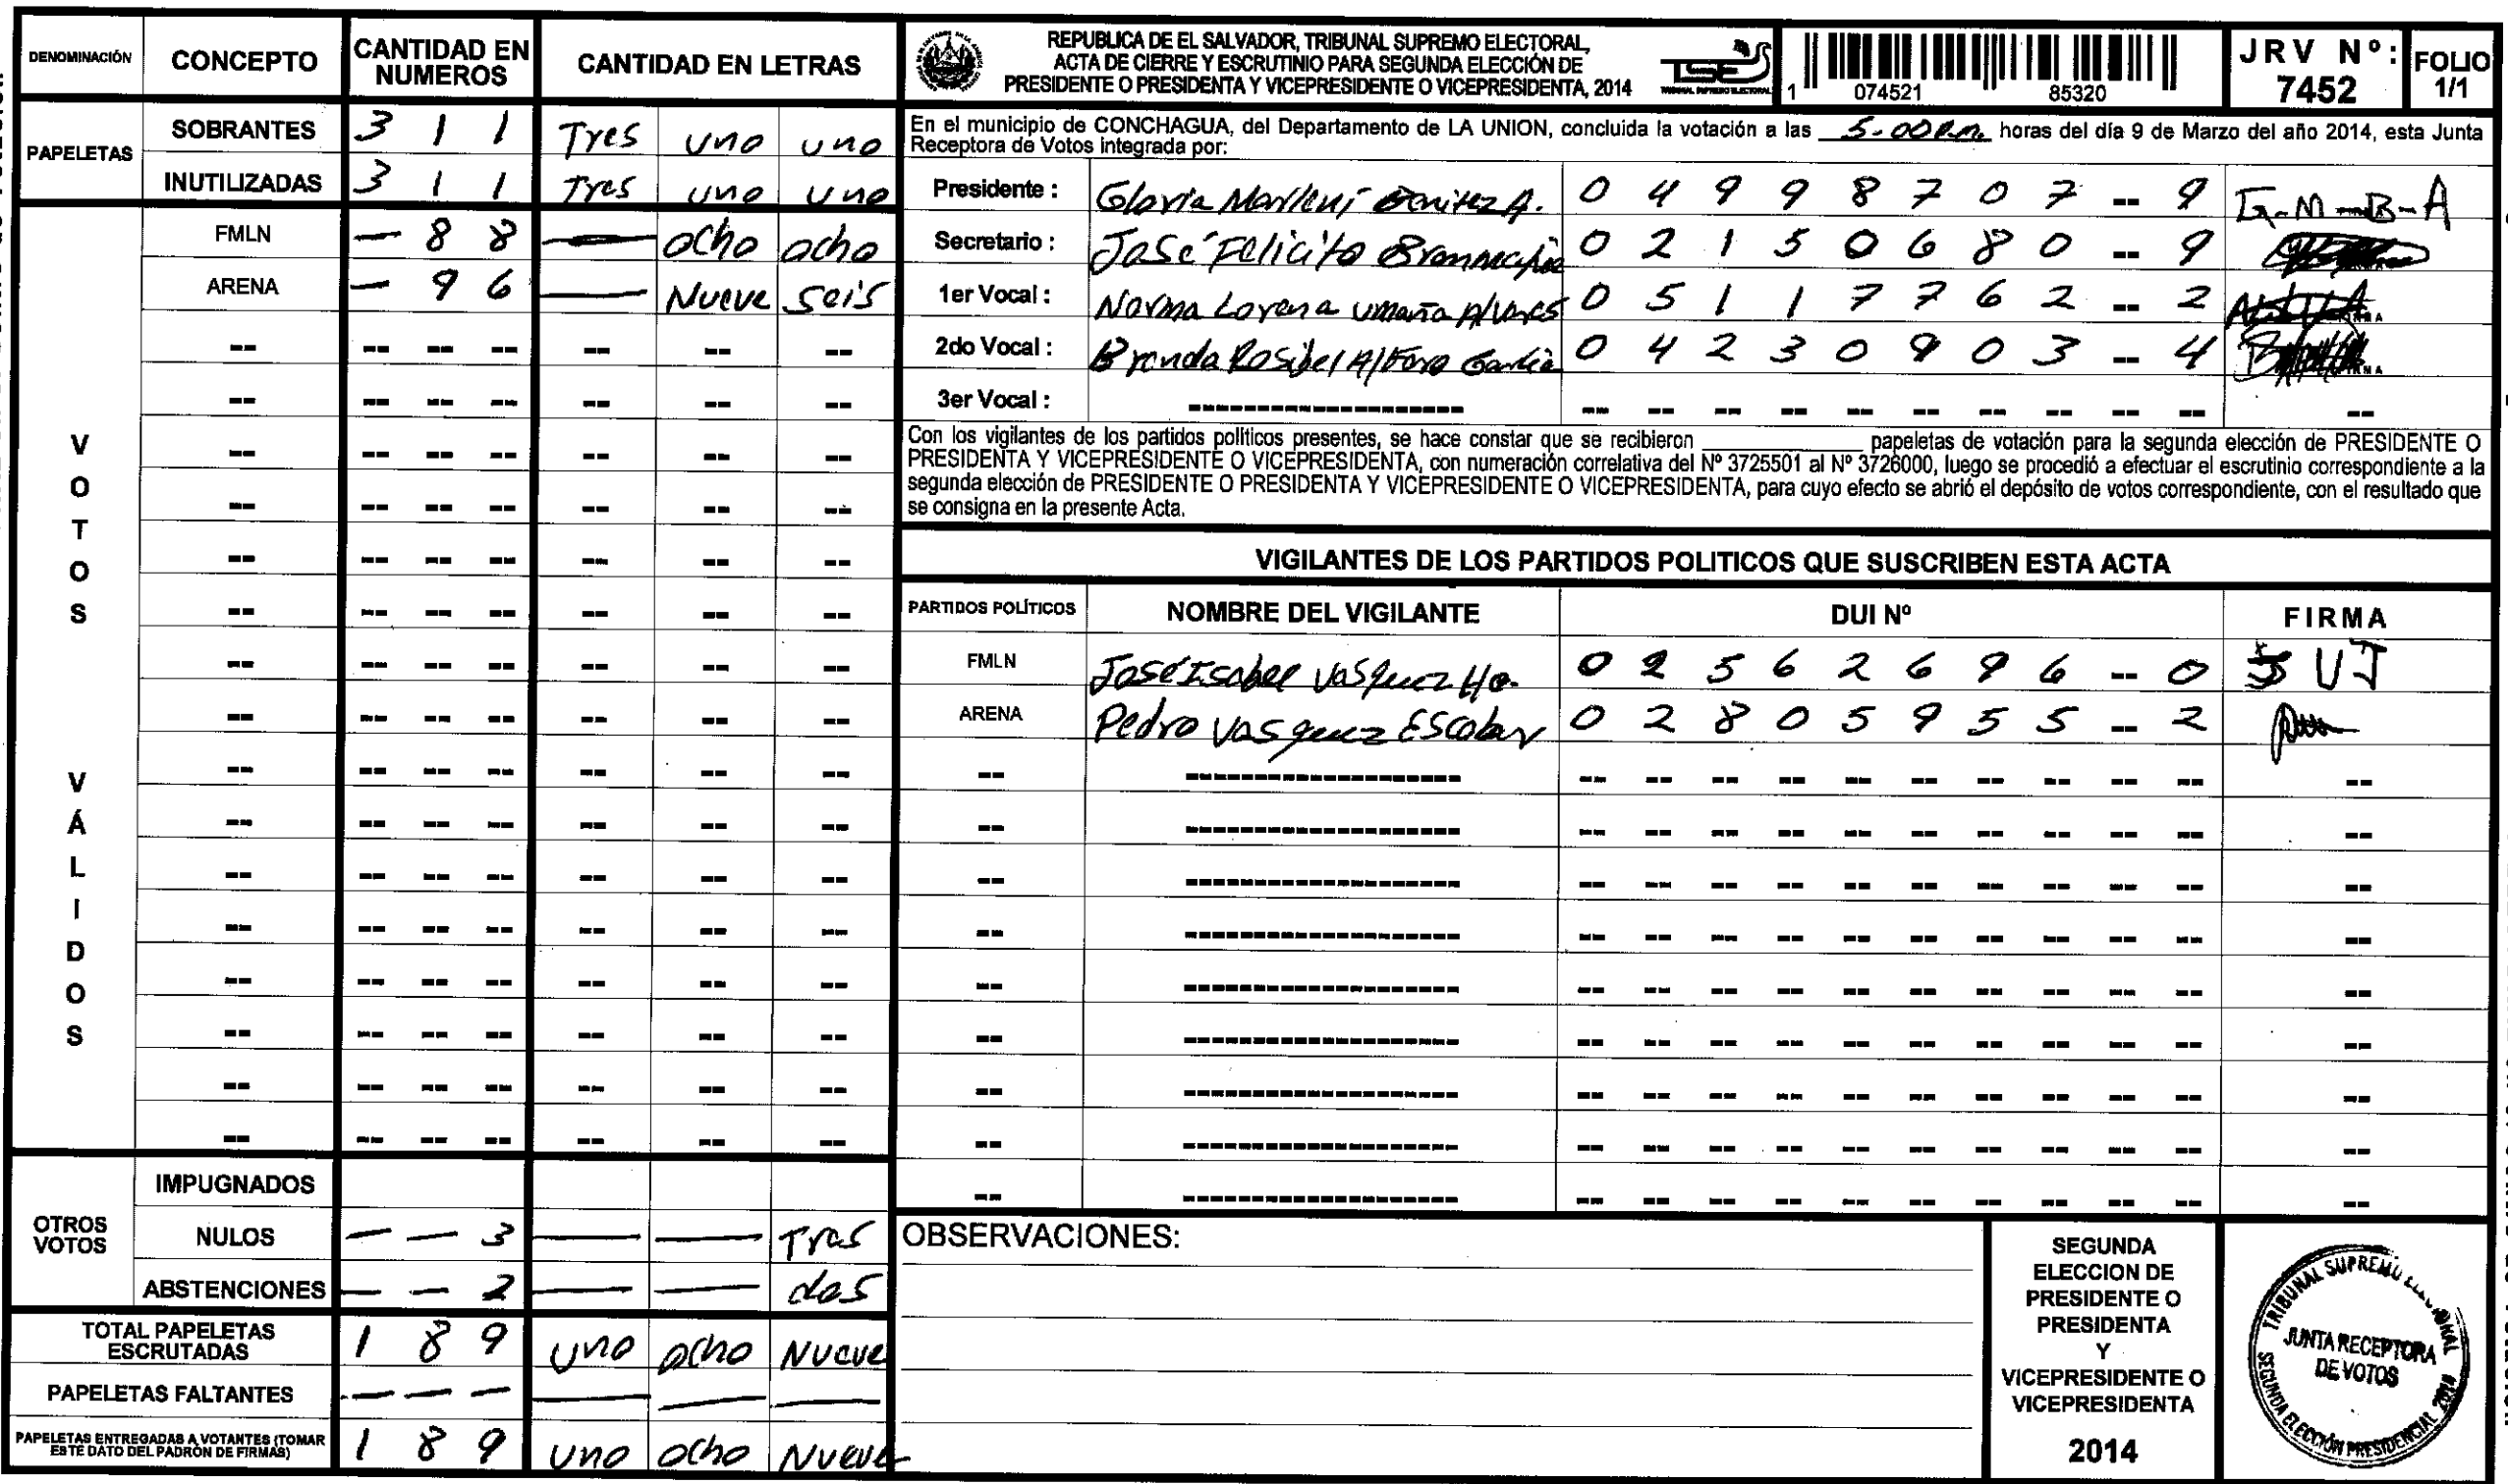 DENOMINACIÓN CONCEPTO CANTIDAD EN NUMEROS CANTIDAD EN LETRAS
PAPELETAS
SOBRANTES 3 1 1 Tres uno uno
INUTILIZADAS 3 1 1 Tres uno uno
VOTOS VÁLIDOS
FMLN — 8 8 — ocho ocho
ARENA — 9 6 — Nueve seis
OTROS VOTOS
IMPUGNADOS
NULOS — — 3 — — Tres
ABSTENCIONES — — 2 — — dos
TOTAL PAPELETAS ESCRUTADAS 1 8 9 uno ocho Nueve
PAPELETAS FALTANTES — — — — — —
PAPELETAS ENTREGADAS A VOTANTES (TOMAR ESTE DATO DEL PADRÓN DE FIRMAS) 1 8 9 uno ocho Nueve
REPUBLICA DE EL SALVADOR, TRIBUNAL SUPREMO ELECTORAL,
ACTA DE CIERRE Y ESCRUTINIO PARA SEGUNDA ELECCIÓN DE
PRESIDENTE O PRESIDENTA Y VICEPRESIDENTE O VICEPRESIDENTA, 2014
TSE
TRIBUNAL SUPREMO ELECTORAL
1 074521 85320
JRV Nº: 7452
FOLIO 1/1
En el municipio de CONCHAGUA, del Departamento de LA UNION, concluida la votación a las 5-00 P.m. horas del día 9 de Marzo del año 2014, esta Junta
Receptora de Votos integrada por:
Presidente : Gloria Marleni Benitez A. 0 4 9 9 8 7 0 7 -- 9 G-M-B-A
Secretario : José Felicito 0 2 1 5 0 6 8 0 -- 9
1er Vocal : Norma Lorena umaña 0 5 1 1 7 7 6 2 -- 2
2do Vocal : Brenda Rosibel Alfaro García 0 4 2 3 0 9 0 3 -- 4
3er Vocal :
Con los vigilantes de los partidos políticos presentes, se hace constar que se recibieron ________ papeletas de votación para la segunda elección de PRESIDENTE O
PRESIDENTA Y VICEPRESIDENTE O VICEPRESIDENTA, con numeración correlativa del Nº 3725501 al Nº 3726000, luego se procedió a efectuar el escrutinio correspondiente a la
segunda elección de PRESIDENTE O PRESIDENTA Y VICEPRESIDENTE O VICEPRESIDENTA, para cuyo efecto se abrió el depósito de votos correspondiente, con el resultado que
se consigna en la presente Acta.
VIGILANTES DE LOS PARTIDOS POLITICOS QUE SUSCRIBEN ESTA ACTA
PARTIDOS POLÍTICOS NOMBRE DEL VIGILANTE DUI Nº FIRMA
FMLN José Isabel Vasquez 0 2 5 6 2 6 9 6 -- 0
ARENA Pedro Vasquez Escobar 0 2 8 0 5 9 5 5 -- 2
OBSERVACIONES:
SEGUNDA
ELECCION DE
PRESIDENTE O
PRESIDENTA
Y
VICEPRESIDENTE O
VICEPRESIDENTA
2014
TRIBUNAL SUPREMO ELECTORAL
JUNTA RECEPTORA
DE VOTOS
SEGUNDA ELECCIÓN PRESIDENCIAL 2014